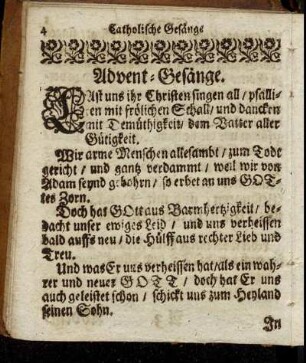 4 Catholische Gesänge
Advent-Gesänge.
LAst uns ihr Christen singen all / psalli-
en mit frölichen Schall / und dancken
mit Demüthigkeit / dem Vatter aller
Gütigkeit.
Wir arme Menschen allesambt / zum Todt
gericht / und gantz verdammt / weil wir von
Adam seynd gebohrn / so erbet an uns GOT-
tes Zorn.
Doch hat GOtt aus Barmhertzigkeit / be-
dacht unser ewiges Leid / und uns verheissen
bald auffs neu / die Hülff aus rechter Lieb und
Treu.
Und was Er uns verheissen hat / als ein wah-
rer und neuer GOTT / doch hat Er uns
auch geleistet schon / schickt uns zum Heyland
seinen Sohn.
In